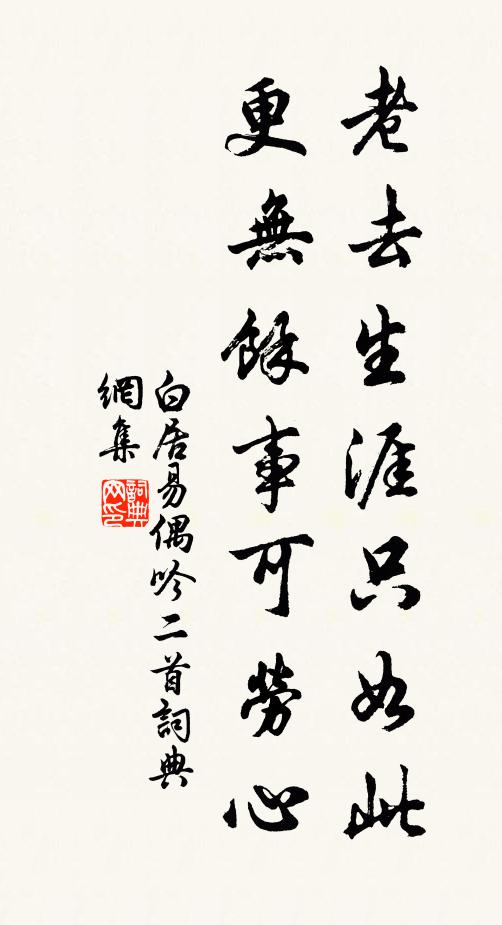 老去生涯只如此
更無餘事可勞心
白居易偶吟二首詞典
網集
詞典网印